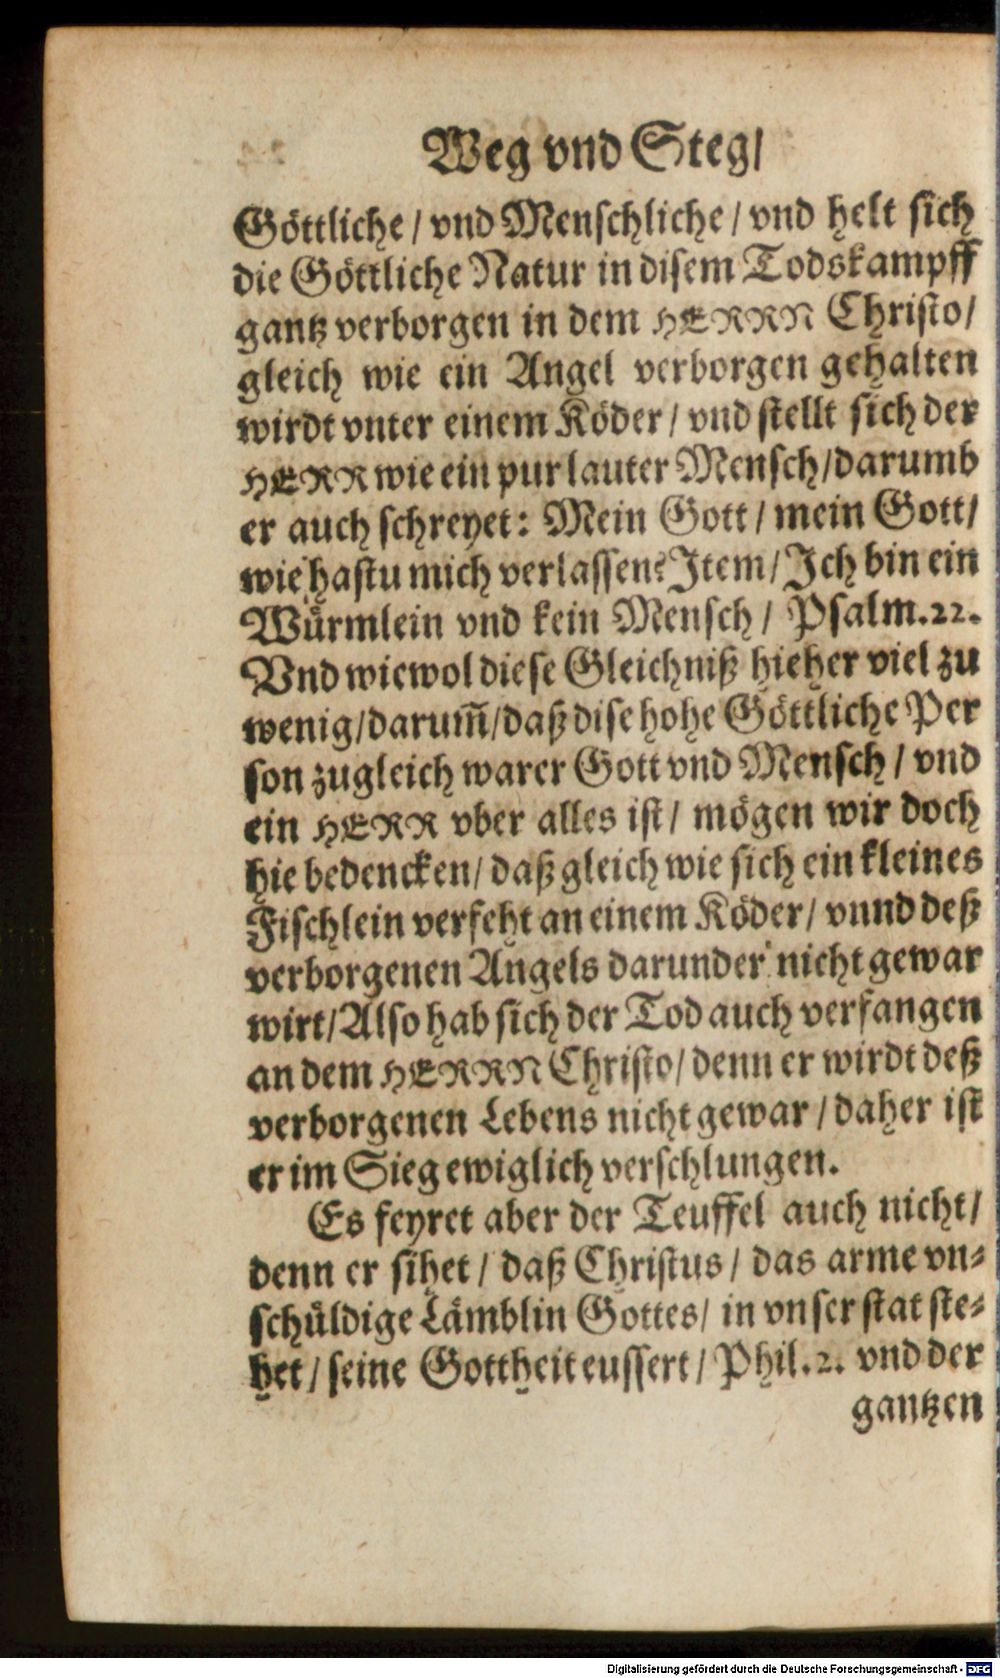 Weg vnd Steg/
Göttliche / vnd Menschliche / vnd helt sich
die Göttliche Natur in disem Todskampff
gantz verborgen in dem HERRN Christo/
gleich wie ein Angel verborgen gehalten
wirdt vnter einem Köder / vnd stellt sich der
HERR wie ein pur lauter Mensch/darumb
er auch schreyet: Mein Gott / mein Gott/
wie hastu mich verlassen? Item/ Ich bin ein
Würmlein vnd kein Mensch / Psalm.22.
Vnd wiewol diese Gleichniß hieher viel zu
wenig/darum̃/daß dise hohe Göttliche Per
son zugleich warer Gott vnd Mensch / vnd
ein HERR vber alles ist/ mögen wir doch
hie bedencken/ daß gleich wie sich ein kleines
Fischlein verfeht an einem Köder/ vnnd deß
verborgenen Angels darunder nicht gewar
wirt/Also hab sich der Tod auch verfangen
an dem HERRN Christo/ denn er wirdt deß
verborgenen Lebens nicht gewar / daher ist
er im Sieg ewiglich verschlungen.
Es feyret aber der Teuffel auch nicht/
denn er sihet / daß Christus / das arme vn-
schüldige Lämblin Gottes/ in vnser stat ste-
het / seine Gottheit eussert / Phil.2. vnd der
gantzen
Digitalisierung gefördert durch die Deutsche Forschungsgemeinschaft - DFG